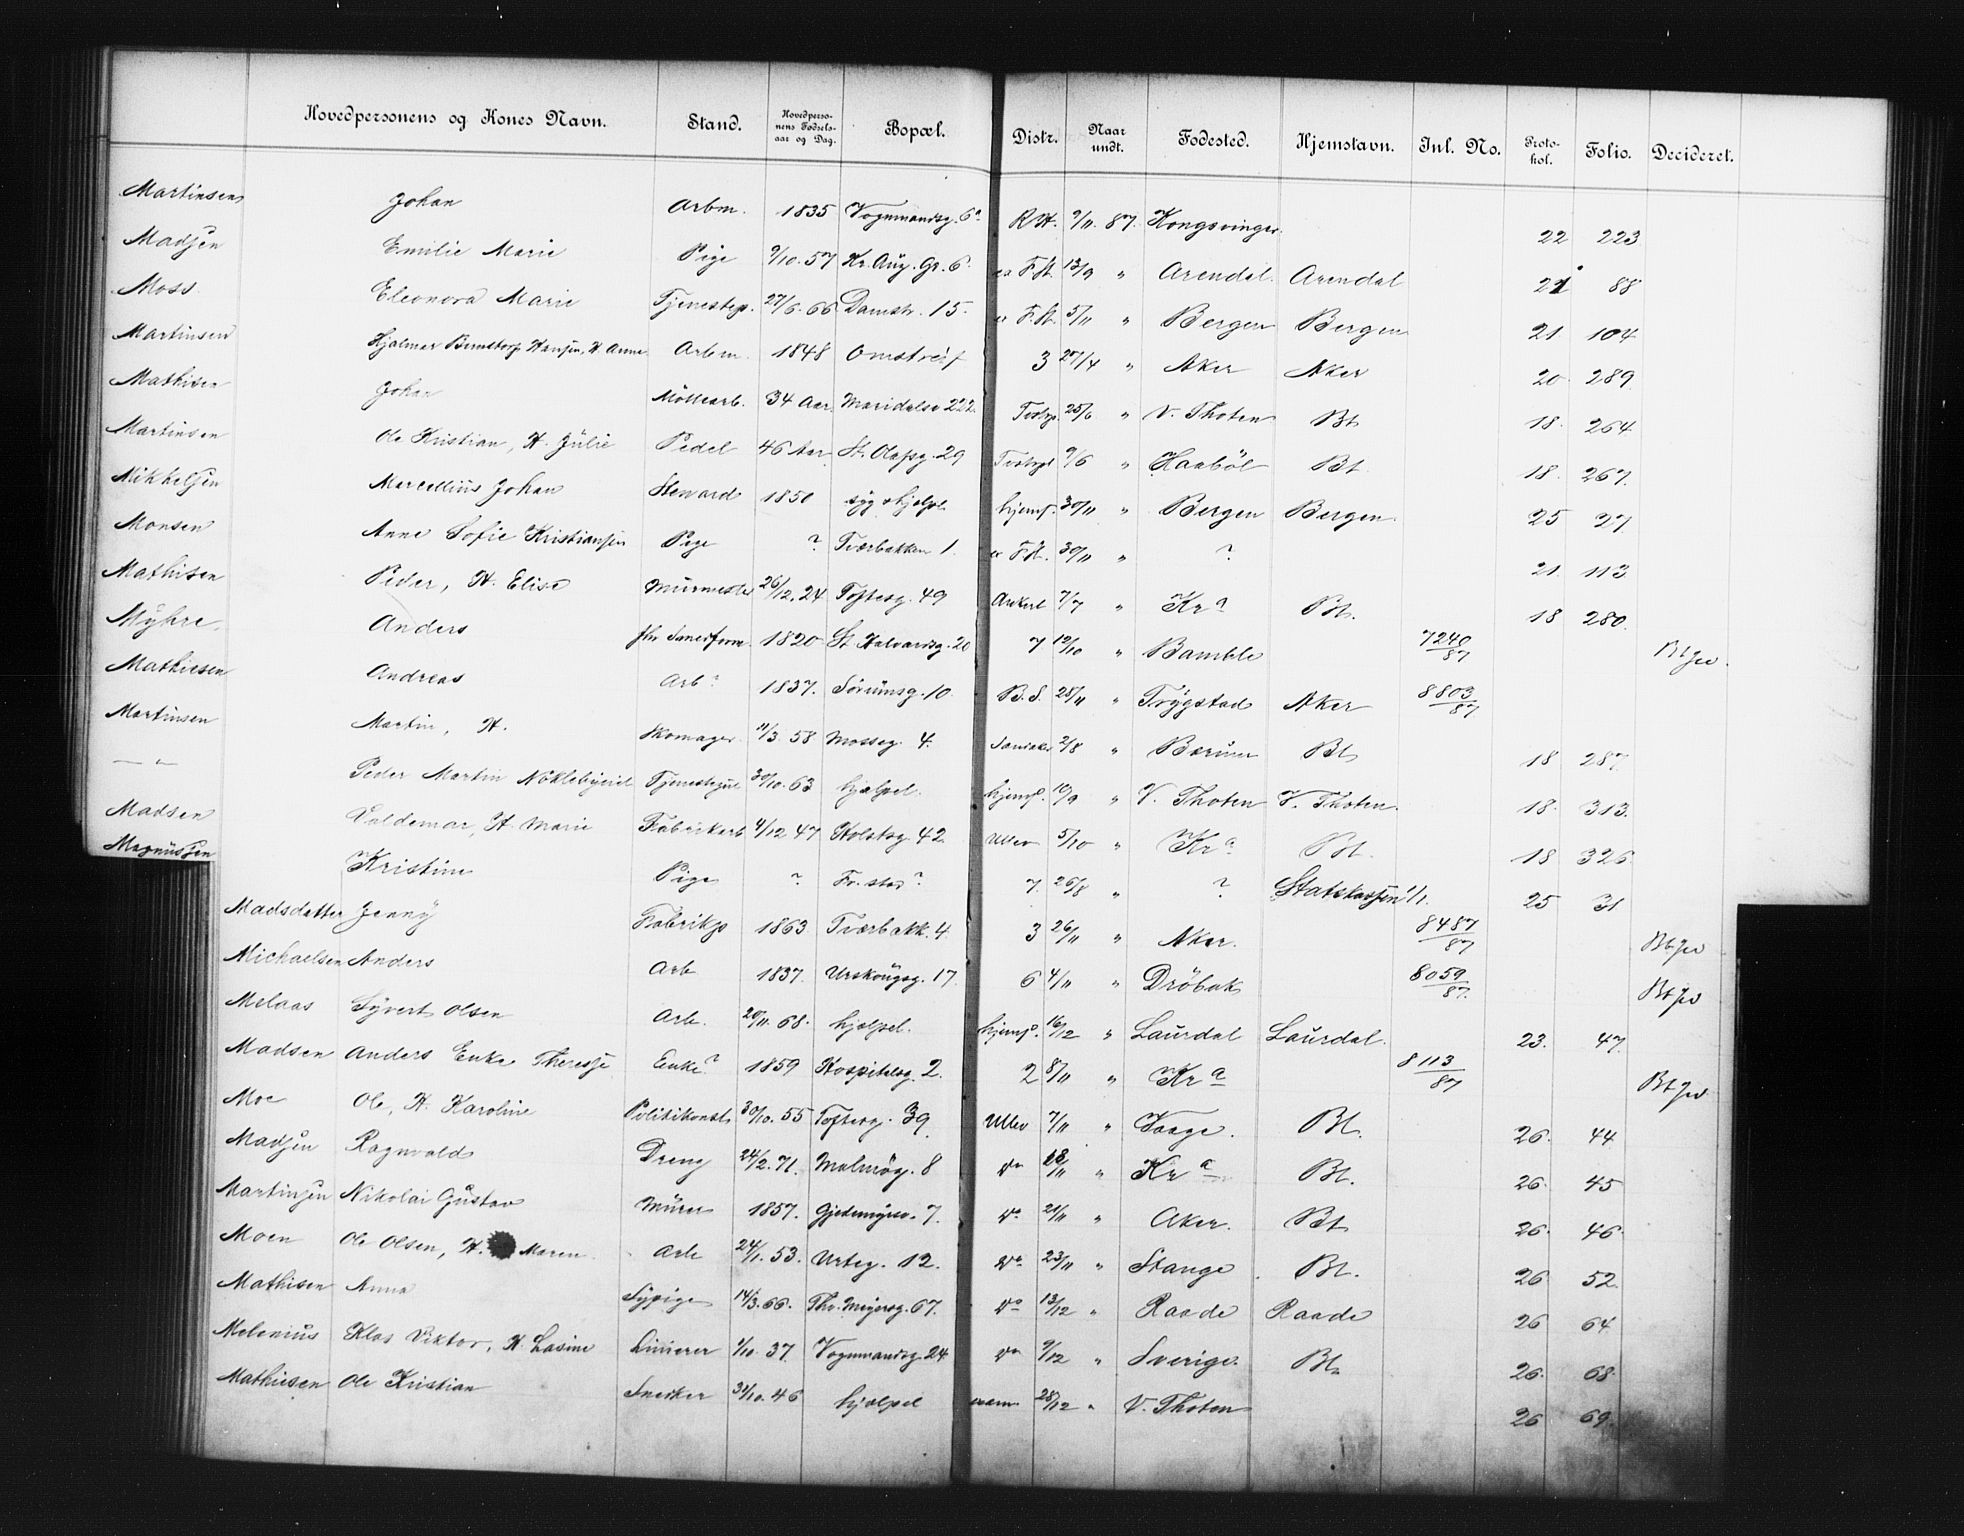 Hovedpersonens og Kones Navn. Stand. Hovedpersonens Fødselsaar og Dag. Bopæl. Distr. Naar undt. Fødested. Hjemstavn. Inl. No. Protokol. Folio. Decideret.
Martinsen Johan Arbm. 1835 Vognmandsg. 6a R.H. 9/11 87. Kongsvinger 22 223
Madsen Emilie Marie Pige 9/10. 57 Kr. Aug. Gr. 6. F.St. 13/9 " Arendal Arendal 21 88
Moss Eleonora Marie Tjenestep. 27/6. 66 Damstr. 15. F.St. 5/11 " Bergen Bergen 21 104
Martinsen Hjalmar Hansen, H. Anne Arbm. 1848 Omstreif 3 27/4 " Aker Aker 20 289
Mathisen Johan Møllearb. 34 Aar Maridalsv 222 25/6 " V. Thoten Bt 18. 264
Martinsen Ole Kristian, H. Julie Pedel 46 Aar St. Olafsg. 29 9/6 " Haabøl Bt. 18 267.
Mikkelsen Marcellius Johan Steward 1850 syg & hjelpel. hjemf. 30/11 " Bergen Bergen. 25 27
Monsen Anne Sofie Kristiansen Pige ? Tværbakken 1. F.St. 30/11 " ? 21. 113
Mathisen Peder, H. Elise Murmester 26/12. 24 Toftesg. 49 Ankerl 7/7 " Kra Bt. 18 280.
Myhre. Anders 1820 St. Halvardsg. 20 7 12/10 " Bamble 7240/87
Mathiesen Andreas Arb? 1837. Sørumsg. 10. B.S. 28/11 " Trygstad Aker 8803/87
Martinsen Martin, H. Skomager 11/3. 58 Mosseg. 4. 2/8 " Bærum Bt 18 287
— " — Peder Martin Nøklebyeid 30/10. 63 hjælpel. hjemf. 10/9 " V. Thoten V. Thoten. 18. 313.
Madsen Valdemar, H. Marie Fabrikarb 4/12 47 Holstsg 42 Ullev 5/10 " Kra Bt. 18 326
Magnussen Kristine Pige ? Fr. stad? 7. 26/8 " ? Statskassen 1/1. 25 31
Madsdatter Jenny Fabrikp 1863 Tværbakk. 4 3 26/11 " Aker. 8487/87
Michaelsen Anders Arb 1837. Urskougsg. 17. 6 4/11 " Drøbak 8059/87.
Melaas Syvert Olsen Arb. 20/11. 68. hjælpel. hjemf. 16/12 " Laurdal Laurdal. 23. 47.
Madsen Anders Enke Theresje Enke? 1859 Hospitalsg. 2. 2 8/11 " Kra 8113/87
Moe Ole, H. Karoline Politikonst. 30/10. 55 Toftesg. 39. Ullev 7/11 " Vaage. Bt. 26. 44
Madsen Ragnvald Dreng 24/2. 71. Malmøg. 8 do 18/11 " Kra Bt. 26. 45
Martinsen Nikolai Gustav Murer 1857. Gjetemyrsv. 7. do 21/11 " Aker. Bt 26. 46.
Moen Ole Olsen, H. Maren Arb 24/1. 53. Urteg. 12. do 23/11 " Stange Bt. 26 52
Mathisen Anna Sypige 14/3. 66. Thv. Meyersg. 67. do 13/12 " Raade Raade 26 64
Melenius Klas Viktor, H. Lasine Linierer 1/10. 37. Vognmandsg 24 do 9/12 " Sverige. Bt. 26. 68
Mathiesen Ole Kristian Snedker 31/10. 46 hjælpel 28/12 " V. Thoten 26 69.